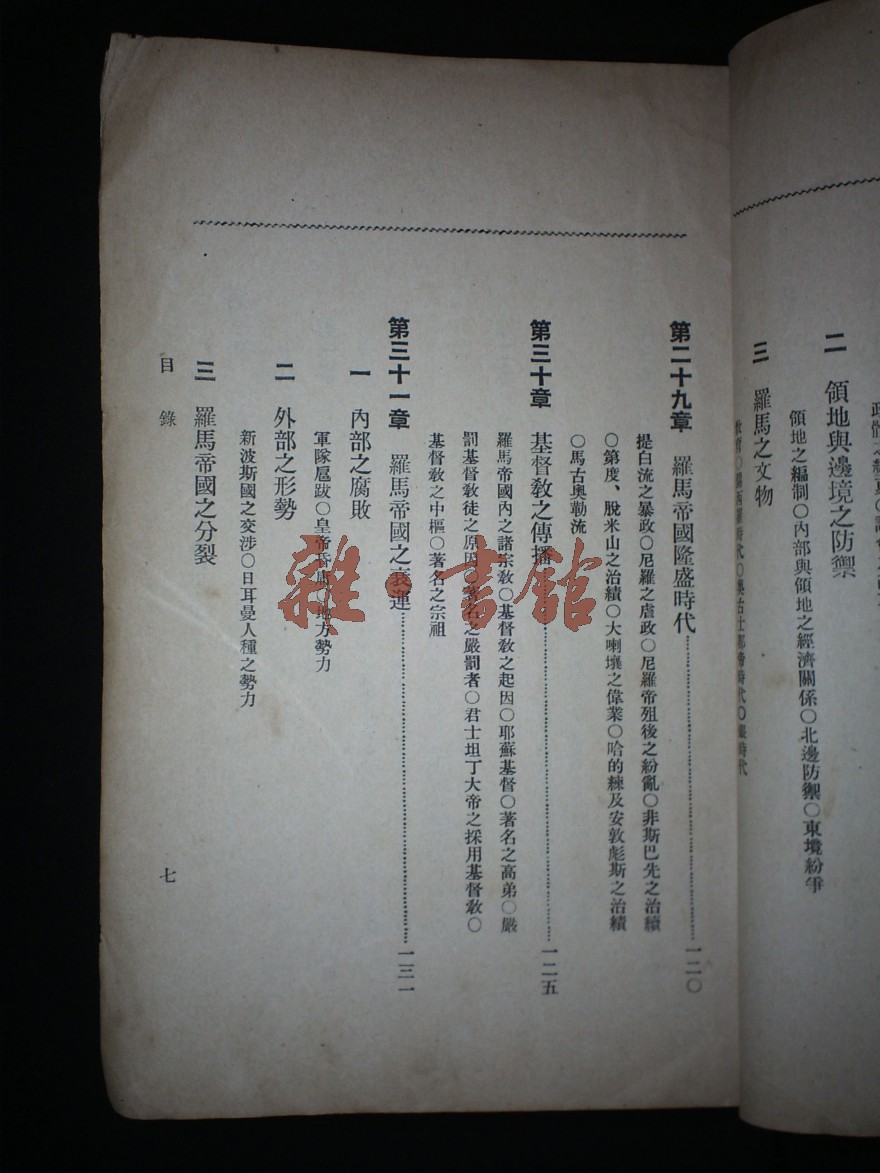 二 領地與邊境之防禦
領地之編制〇內部與領地之經濟關係〇北邊防禦〇東境紛爭
三 羅馬之文物
第二十九章 羅馬帝國隆盛時代 一二〇
提白流之暴政〇尼羅之虐政〇尼羅帝殂後之紛亂〇非斯巴先之治績
〇第度、脫米山之治績〇大喇壤之偉業〇哈的練及安敦彪斯之治績
〇馬古奧勒流
第三十章 基督敎之傳播 一二五
羅馬帝國內之諸宗敎〇基督敎之起因〇耶蘇基督〇著名之高弟〇嚴
罰基督敎徒之原因〇著名之嚴罰者〇君士坦丁大帝之採用基督敎〇
基督敎之中樞〇著名之宗祖
第三十一章 羅馬帝國之衰運 一三一
一 內部之腐敗
軍隊扈跋〇皇帝昏庸〇地方勢力
二 外部之形勢
新波斯國之交涉〇日耳曼人種之勢力
三 羅馬帝國之分裂
目錄
七
雜·書館